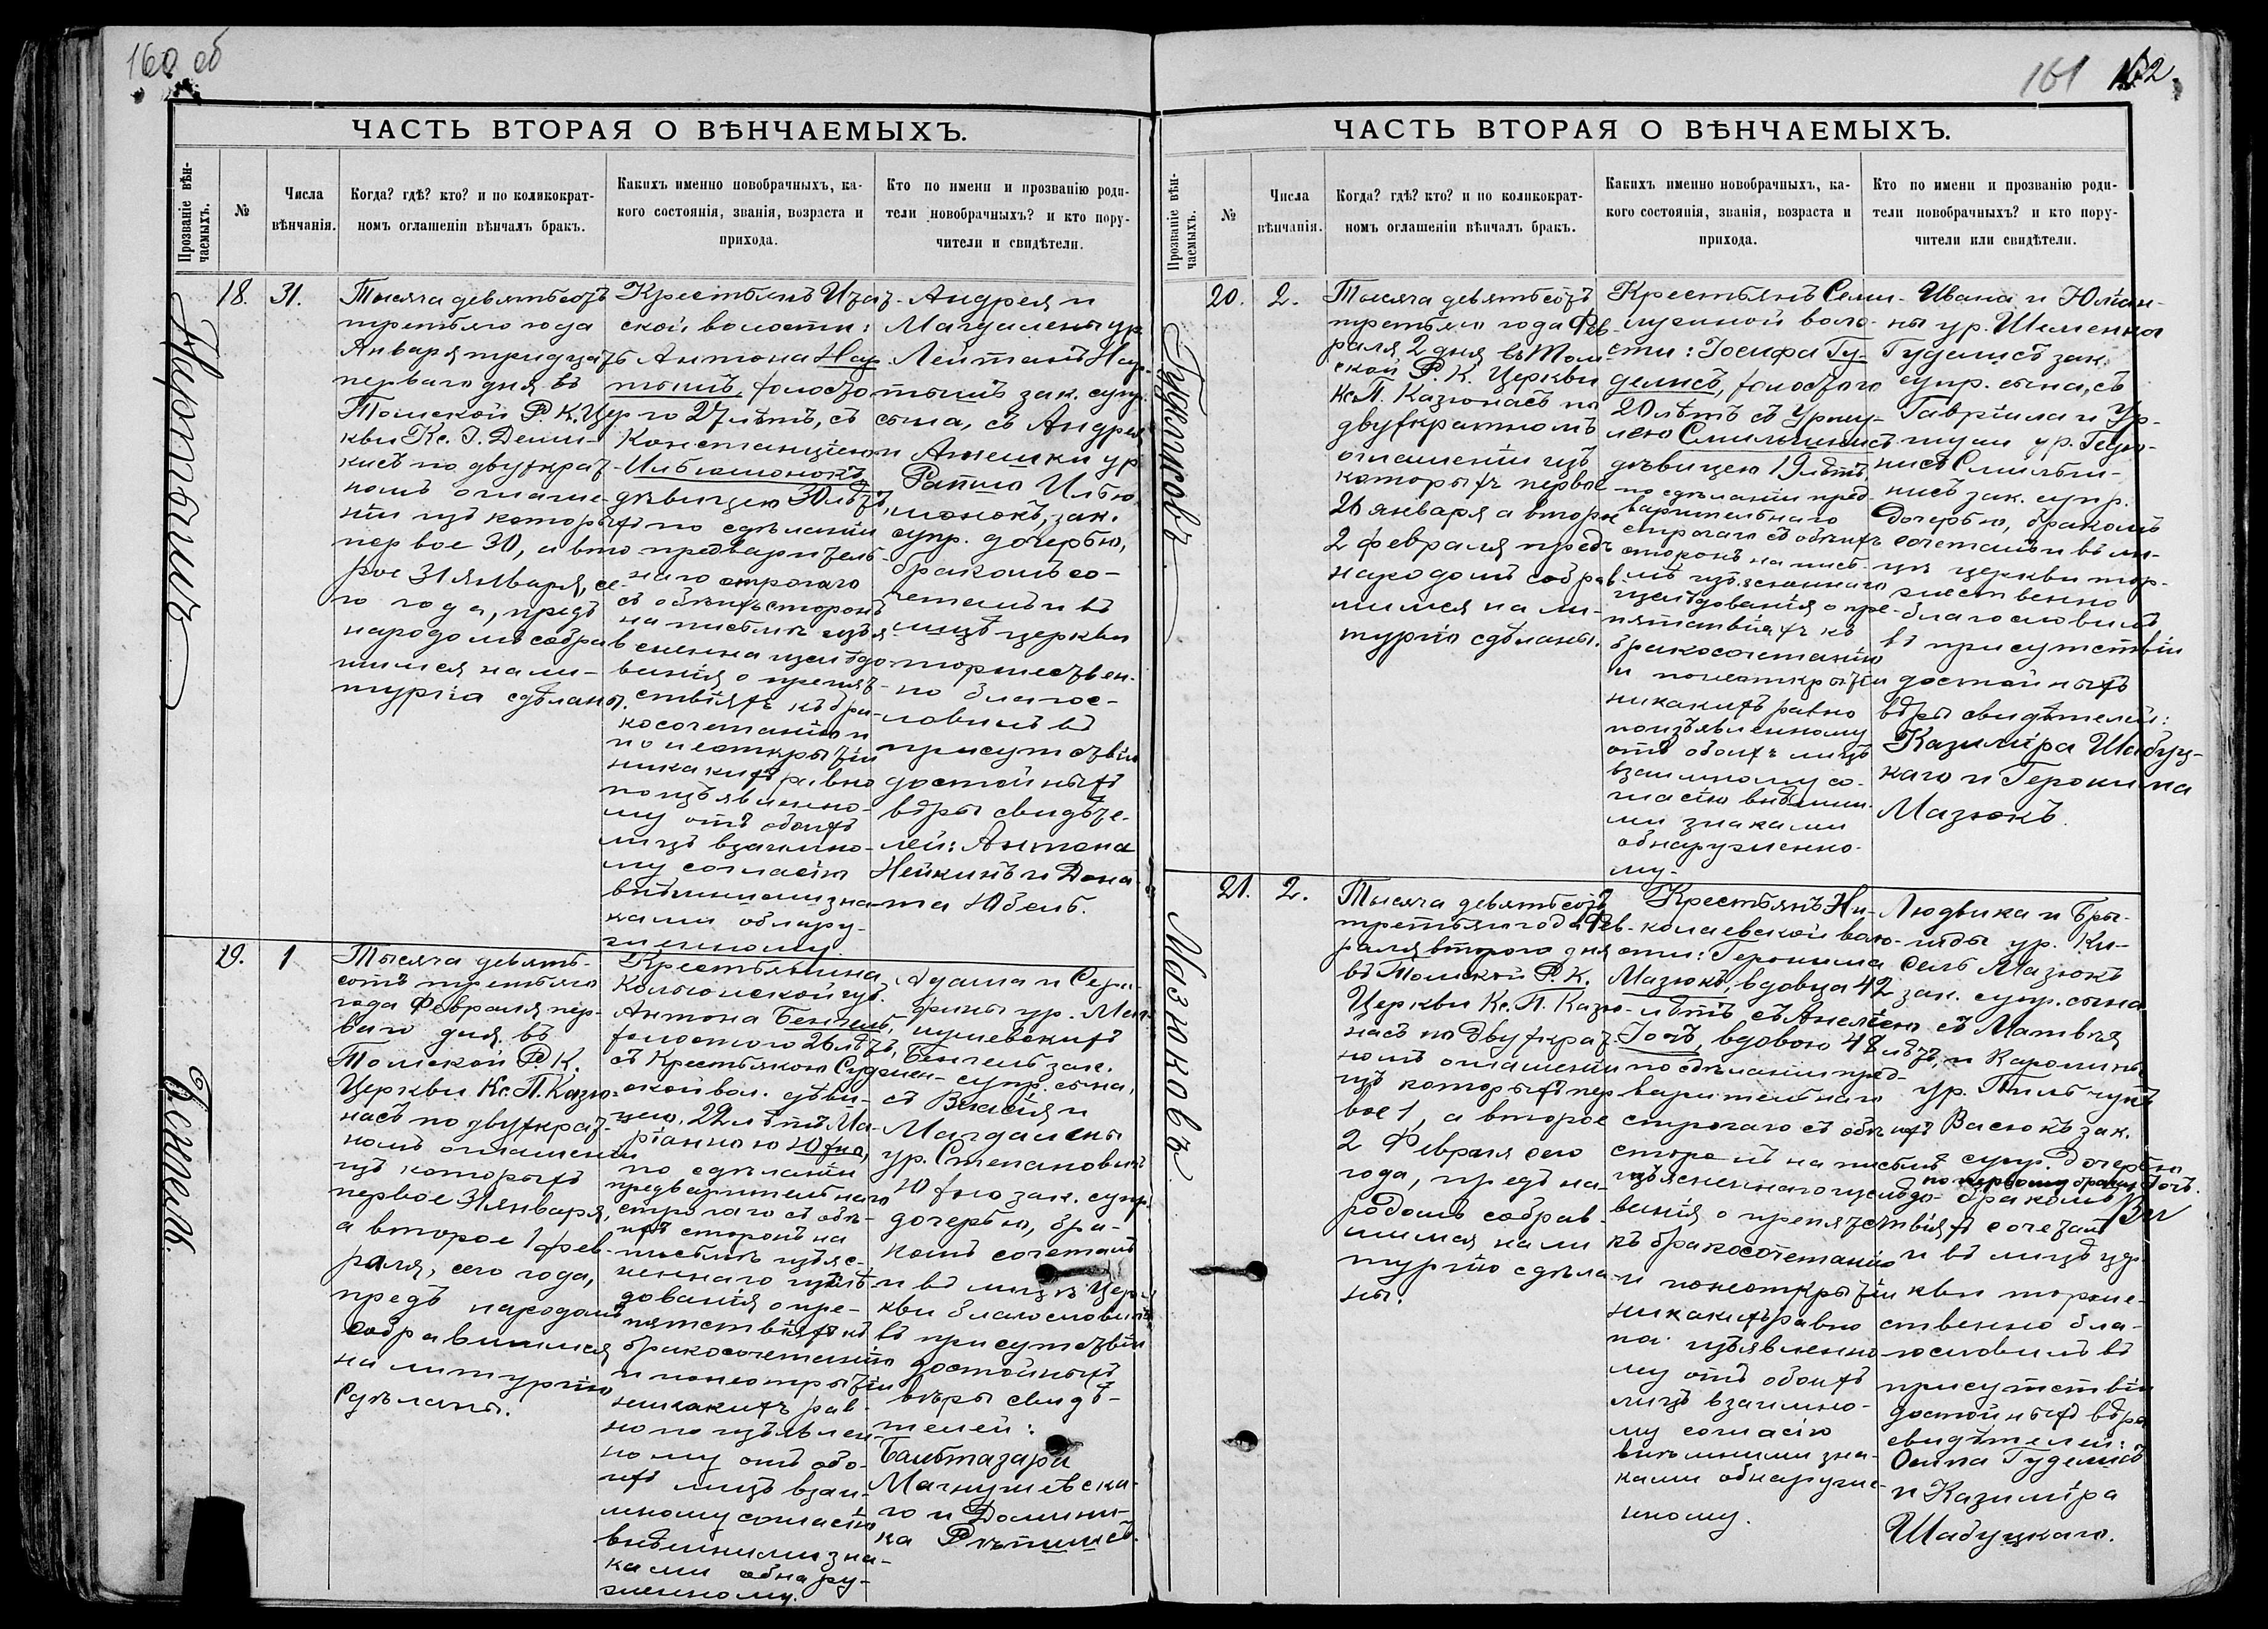 160 об
ЧАСТЬ ВТОРАЯ О ВѢНЧАЕМЫХЪ.
Прозваніе вѣн-
чаемыхъ.
№
Числа
вѣнчанія.
Когда? гдѣ? кто? и по коликократ-
номъ оглашеніи вѣнчалъ бракъ.
Какихъ именно новобрачныхъ, ка-
кого состоянія, званія, возраста и
прихода.
Кто по имени и прозванію роди-
тели новобрачныхъ? и кто пору-
чители и свидѣтели.
18.
31.
Тысяча девятьсотъ
третьяго года
Января тридцать
перваго дня въ
Томской Р. К. Цер
кви Кс. І. Деми-
кисъ по двухкрат-
номъ оглаше-
ніи изъ которыхъ
первое 30, а вто
рое 31 января, се-
го года, предъ
народомъ собрав
шимся на ли-
тургіи сдѣланы.
Крестьянъ
ской волости:
Антона
холосто
го 27 лѣтъ, съ
Констанціею
Ильбюшонокъ,
дѣвицею 30 лѣтъ,
по сдѣланіи
предваритель
наго строгаго
съ обѣихъ сторонъ
на письмѣ изъя
сненна изслѣдо-
ванія о препят-
ствіяхъ къ бра-
косочетанію и
по неоткрытіи
никакихъ равно
по изъявленно-
му отъ обоихъ
лицъ взаимно-
му согласію
внѣшними зна-
ками обнару-
женному.
Андрея и
Магдалены ур.
Лейтанъ
зак. супр.
сына, съ Андрея
и Агнешки ур
Рапшо Ильбю
шонокъ, зак.
супр. дочерью,
бракомъ со-
четалъ и въ
лицѣ церкви
торжествен-
но благос-
ловилъ въ
присутствіи
достойныхъ
вѣры свидѣте-
лей: Антона
Нейкинъ и Дона-
та Юбель.
19.
1
Бенгель.
Тысяча девять-
сотъ третьяго
года Февраля пер-
ваго дня. въ
Томской Р. К.
Церкви Кс. П. Казю-
насъ по двухкрат-
номъ оглашеніи
изъ которыхъ
первое 31 января,
а второе 1 фев-
раля, сего года,
предъ народомъ
собравшимся
на литургію
сдѣланы.
Крестьянина
губ.
Антона Бенгель,
холостого 26 лѣтъ,
съ Крестьянкою Суджен-
ской вол. дѣви-
цею, 22 лѣтъ Ма-
ріанною Юхно,
по сдѣланіи
предварительнаго
строгаго съ обѣ-
ихъ сторонъ на
письмѣ изъяс-
неннаго изслѣ-
дованія о пре-
пятствіяхъ къ
бракосочетанію
и по неоткрытіи
никакихъ рав-
но по изъявлен
ному отъ обо-
ихъ лицъ взаи-
мному согласію
внѣшними зна-
ками обнару-
женному.
Адама и Сера-
фины ур.
Бенгель зак.
супр. сына,
съ Власія и
Магдалены
ур. Степановичъ
Юхно зак. супр.
дочерью, бра-
комъ сочеталъ
и въ лицѣ Цер-
кви благословилъ
въ присутствіи
достойныхъ
вѣры свидѣ-
телей:
Бальтазара
Магнушевска-
го и Домини-
ка
161
162.
ЧАСТЬ ВТОРАЯ О ВѢНЧАЕМЫХЪ.
Прозваніе вѣн-
чаемыхъ.
№
Числа
вѣнчанія.
Когда? гдѣ? кто? и по коликократ-
номъ оглашеніи вѣнчалъ бракъ.
Какихъ именно новобрачныхъ, ка-
кого состоянія, званія, возраста и
прихода.
Кто по имени и прозванію роди-
тели новобрачныхъ? и кто пору-
чители или свидѣтели.
20.
2.
Гуделисовъ
Тысяча девятьсотъ
третьяго года Фев-
раля 2 дня въ Том
ской Р. К. Церкви
Кс. П. Казюнасъ по
двухкратномъ
оглашеніи изъ
которыхъ первое
26 января а второе
2 февраля предъ
народомъ собрав-
шимся на ли-
тургію сдѣланы.
Крестьянъ Семи-
лужной воло-
сти: Іосифа Гу-
делисъ, холостого
20 лѣтъ съ Уршу-
лею Смильгинисъ
дѣвицею 19 лѣтъ,
по сдѣланіи пред-
варительнаго
строгаго съ обѣихъ
сторонъ на пись-
мѣ изъясненнаго
изслѣдованія о пре-
пятствіяхъ къ
бракосочетанію
и по неоткрытіи
никакихъ равно
по изъявленному
отъ обоихъ лицъ
взаимному со-
гласію внѣшни-
ми знаками
обнаруженно-
му.
Ивана и Юліан-
ны ур.
Гуделисъ зак.
супр. сына, съ
Гавріила и Ур-
шули ур.
Смильги-
нисъ зак. супр.
дочерью, бракомъ
сочеталъ и въ ли-
цѣ церкви тор-
жественно
благословилъ
въ присутствіи
достойныхъ
вѣры свидѣтелей:
Казиміра Шабуц-
каго и Геронима
Мазюкъ.
21.
2.
Мазюковъ
Тысяча девятьсотъ
третьяго года Фев-
раля второго дня
въ Томской Р. К.
Церкви Кс. П. Казю-
насъ по двухкрат-
номъ оглашеніи
изъ которыхъ пер
вое 1, а второе
2 Февраля сего
года, предъ на-
родомъ собрав-
шимся на ли
тургію сдѣла-
ны.
Крестьянъ Ни-
колаевской воло-
сти: Геронима
Мазюкъ, вдовца 42
лѣтъ съ Анеліею
вдовою 48 лѣтъ,
по сдѣланіи пред-
варительнаго
строгаго съ обѣихъ
сторонъ на письмѣ
изъясненнаго изслѣдо-
ванія о препятствіяхъ
къ бракосочетанію
и по неоткрытіи
никакихъ равно
по изъявленно
му отъ обоихъ
лицъ взаимно-
му согласію
внѣшними зна-
ками обнаруже-
нному.
Людвика и Бри-
гиды ур. Ки-
сель Мазюкъ
зак. супр. сына
съ Матвѣя
и Каролины
ур.
Васюкъ зак.
супр. дочерью
по первому браку
бракомъ
сочеталъ
и въ лицѣ цер
кви торже-
ственно бла-
гословилъ въ
присутствіи
достойныхъ вѣры
свидѣтелей:
Осипа Гуделисъ
и Казиміра
Шабуцкаго.